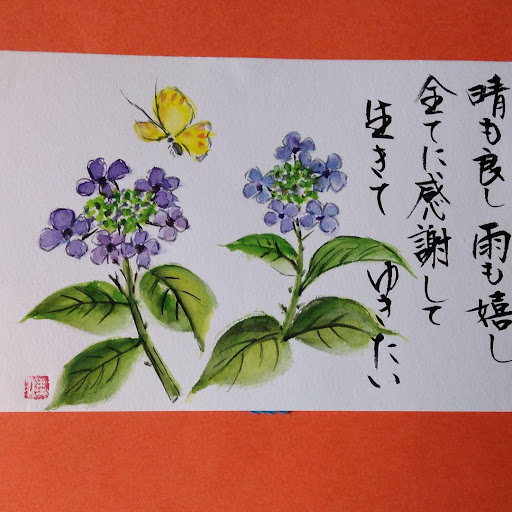 晴も良し 雨も嬉し
全てに感謝して
生きて ゆきたい